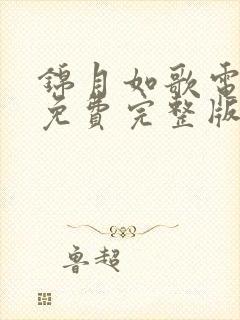 錦月如歌電
免費完整版
魯超